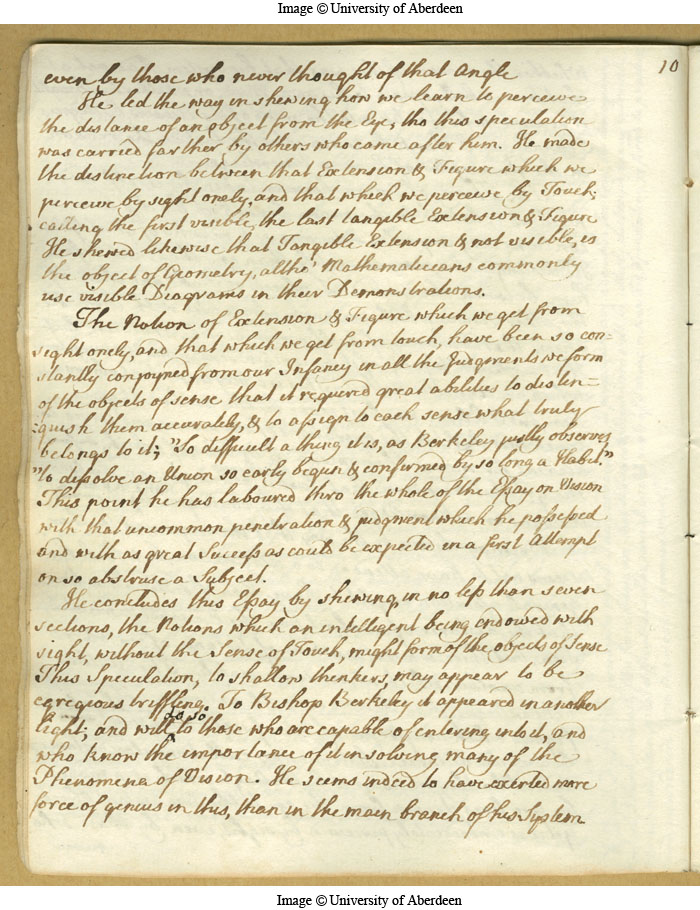 Image © University of Aberdeen
10
even by those who never thought of that Angle
He led the way in shewing how we learn to perceive
the distance of an object from the Eye, tho this speculation
was carried farther by others who came after him. He made
the distinction between that Extension & Figure which we
perceive by sight onely, and that which we perceive by Touch;
calling the first visible, the last tangible Extension & Figure
He shewed likewise that Tangible Extension & not visible, is
the object of Geometry, altho' Mathematicians commonly
use visible Diagrams in their Demonstrations.
The Notion of Extension & Figure which we get from
sight onely, and that which we get from touch, have been so con=
stantly conjoyned from our Infancy in all the Judgments we form
of the objects of sense that it required great abilities to distin=
:guish them accurately, & to assign to each sense what truly
belongs to it; "So difficult a thing it is, as Berkeley justly observes,
"to dissolve an Union so early begun & confirmed by so long a Habit."
This point he has laboured thro the whole of the Essay on Vision
with that uncommon penetration & judgment which he possessed
and with as great Success as could be expected in a first Attempt
on so abstruse a Subject.
He concludes this Essay by shewing, in no less than seven
sections, the Notions which an intelligent being endowed with
sight, without the Sense of Touch, might form of the objects of Sense
This Speculation, to shallow thinkers, may appear to be
egregious triffling. To Bishop Berkeley it appeared in another
light; and will do so to those who are capable of entering into it, and
who know the importance of it in solving many of the
Phenomena of Vision. He seems indeed to have exerted more
force of genius in this, than in the main branch of his System
Image © University of Aberdeen